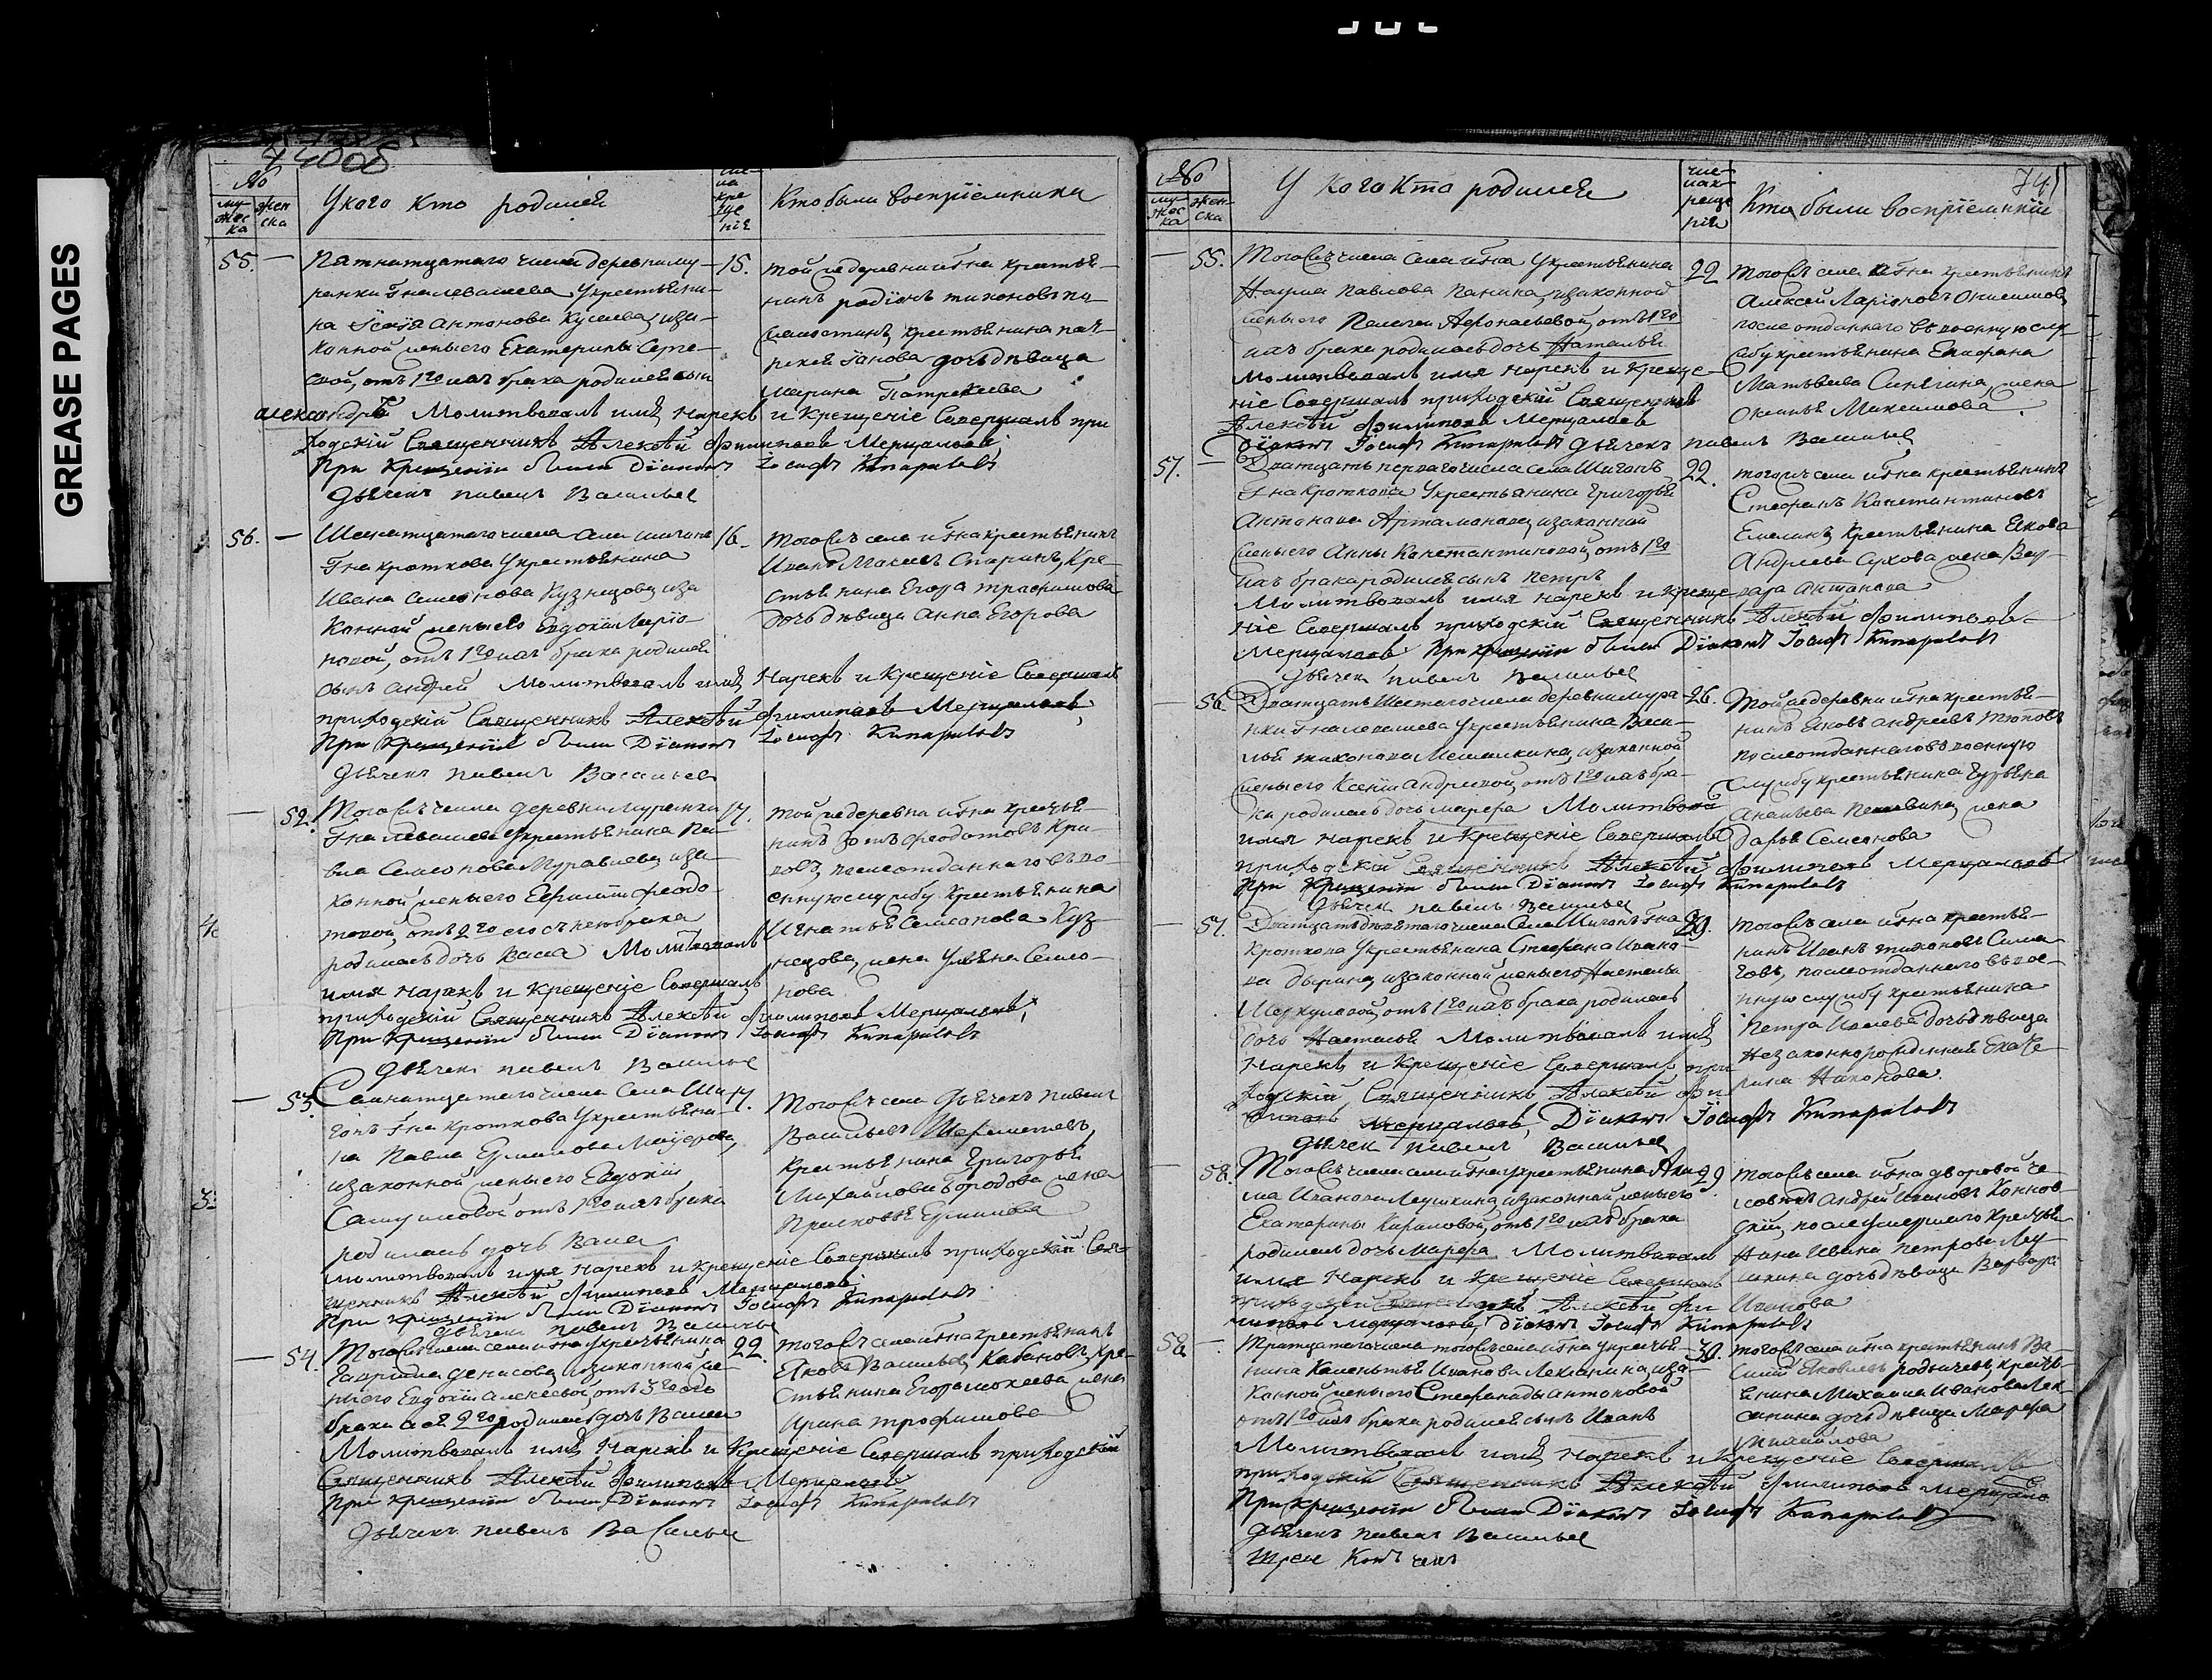 GREASE PAGES
№
му-
жес
ка
жен
ска
У кого кто родился
чис-
ла
кре
ще
нія
Кто были воспріемники
55.
Пятнатцатаго числа деревни Му-
ранки Гна Левашева у крестьяни-
на Антонова
конной жены его Екатерины Серге-
евой, отъ 1го ихъ брака родился сынъ
Александръ Молитвовалъ имя нарекъ и крещеніе совершалъ при
ходскій священникъ Алексѣй Филиповъ Мерцаловъ
При крещеніи были Діаконъ Іосифъ Кипарисовъ
Дьячекъ Павелъ Васильев
15.
той же деревни и Гна крестья-
нинъ Родіонъ Тихоновъ
крестьянина
дочь дѣвица
Марина
56.
Шеснатцатаго числа села Шигонъ
Гна Кроткова у крестьянина
Ивана Семенова Кузнецова, иза
конной жены его Евдокіи Ларіо-
новой, отъ 1го ихъ брака родился
сынъ Андрей Молитвовалъ имя нарекъ и крещеніе совершалъ
приходскій священникъ Алексѣй Филиповъ Мерцаловъ,
При крещеніи были Діаконъ Іосифъ Кипарисовъ
Дьячекъ Павелъ Васильев
16.
тогожъ села и Гна крестьянинъ
Иванъ Спиринъ, кре-
стьянина Егора Трафимова
дочь дѣвица Анна Егорова
52.
Тогожъ числа деревни Муранки
Гна Левашева у крестьянина Па-
вла Семенова Муравьева, иза-
конной жены его Ефиміи Феодо-
товой, отъ 2го его с нею брака
родилась дочь Васса Молитвовалъ
имя нарекъ и крещеніе совершалъ
приходскій священникъ Алексѣй Филиповъ Мерцаловъ,
При крещеніи были Діаконъ Іосифъ Кипарисовъ
Дьячекъ Павелъ Васильев
17.
той же деревни и Гна крестья-
нинъ Феодотовъ
после отданнаго въ во-
енную службу крестьянина
Игнатья Семенова Куз-
нецова, жена Ульяна Семе-
нова
53.
Семнатцатаго числа села Ши
гонъ Гна Кроткова у крестьяни-
на Павла Ермилова
изаконной жены его Евдокіи
Самуиловой отъ 1го ихъ брака
родилась дочь Васса
Молитвовалъ имя нарекъ и крещеніе совершалъ приходскій свя-
щенникъ Алексѣй Филиповъ Мерцаловъ,
При крещеніи были Діаконъ Іосифъ Кипарисовъ
Дьячекъ Павелъ Васильев
17.
Тогожъ села Дьячекъ Павелъ
Васильевъ Шереметевъ,
крестьянина Григорья
Михайлова Бородова жена
Прасковья Ермилова
54.
Тогожъ числа села и Гна у крестьянина
Гаврила Денисова, изаконной же
ны его Евдокіи Алексеевой, отъ 3го его
брака а ея 2го родилась дочь Васса
Молитвовалъ имя нарекъ и крещеніе совершалъ приходскій
священникъ Алексѣй Филиповъ Мерцаловъ
При крещеніи были Діаконъ Іосифъ Кипарисовъ
Дьячекъ Павелъ Васильев
22.
тогожъ села и Гна крестьянинъ
Яковъ Васильевъ Кабановъ, кре-
стьянина Егора Мокеева жена
Ирина Трофимова
№
му-
жес
ка
жен-
ска
У кого кто родился
чис-
ла к-
реще
нія
Кто были воспріемники
741
55.
Тогожъ числа села и Гна у крестьянина
Наума Павлова Панина, изаконной
жены его Пелагеи Афонасьевой, отъ 1го
ихъ брака родилась дочь Наталья
Молитвовалъ имя нарекъ и креще-
ніе совершалъ приходскій священникъ
Алексѣй Филиповъ Мерцаловъ
Діаконъ Іосифъ Кипарисовъ Дьячекъ Павелъ Васильев
22
тогожъ села и Гна крестьянинъ
Алексей Ларіоновъ Онисимовъ
после отданнаго въ военную слу-
жбу крестьянина Епифана
Матвеева Синягина, жена
Оксинья Максимова.
57.
Дватцать перваго числа села Шигонъ
Гна Кроткова у крестьянина Григорья
Антонова Артамонова, изаконной
жены его Анны Константиновой, отъ 1го
ихъ брака родился сынъ Петръ
Молитвовалъ имя нарекъ и креще-
ніе совершалъ приходскій священникъ Алексѣй Филиповъ
Мерцаловъ При крещеніи были Діаконъ Іосифъ Кипарисовъ
Дьячек Павелъ Васильев
22.
тогожъ села и Гна крестьянинъ
Стефанъ Константиновъ
Емелинъ, крестьянина Якова
Андреева Сухова жена Вар-
вара Антонова
56.
Дватцать шестаго числа деревни Мура
нки Гна Левашева у крестьянина Васи
лья Тихонова Мешалкина, изаконной
жены его Ксеніи Андреевой, отъ 1го ихъ бра-
ка родилась дочь Марфа Молитвовалъ
имя нарекъ и крещеніе совершалъ
приходскій священникъ Алексѣй Филиповъ Мерцаловъ
При крещеніи были Діаконъ Іосифъ Кипарисовъ
Дьячек Павелъ Васильев
26.
Той же деревни и Гна крестья-
нинъ Яковъ Андреевъ Тюковъ
после отданнаго въ военную
службу крестьянина Гурьяна
Ананьева жена
Дарья Семенова
57.
Дватцать девятаго числа села Шигонъ Гна
Кроткова у крестьянина Стефана Ивано-
ва Дырина, изаконной жены его Настасьи
Меркуловой, отъ 1го ихъ брака родилась
дочь Настасья Молитвовалъ имя
нарекъ и крещеніе совершалъ при
ходскій священникъ Алексѣй Фи
липовъ Мерцаловъ, Діаконъ Іосифъ Кипарисовъ
Дьячек Павелъ Васильев
29.
тогожъ села и Гна крестья-
нинъ Иванъ Тихоновъ
после отданнаго въ вое-
нную службу крестьянина
Петра дочь дѣвица
незаконнорожденная Екате
рина
58.
Тогожъ числа села и Гна у крестьянина Аки
ма Иванова Леушкина, изаконной жены его
Екатерины Кириловой, отъ 1го ихъ брака
родилась дочь Марфа Молитвовалъ
имя нарекъ и крещеніе совершалъ
приходскій священникъ Алексѣй Фи
липовъ Мерцаловъ, Діаконъ Іосифъ Кипарисовъ
29.
тогожъ села и Гна дворовой че
ловекъ Андрей Ивановъ Коннов-
скій, после умершаго крестья
нина Ивана Петрова Леу
шкина дочь дѣвица Варвара
Иванова
58.
Тритцатаго числа тогожъ села и Гна у крестья-
нина Калентья Иванова иза-
конной жены его Стефаниды Антоновой
отъ 1го ихъ брака родился сынъ Иванъ
Молитвовалъ имя нарекъ и крещеніе совершалъ
приходскій священникъ Алексѣй Филиповъ Мерцаловъ
При крещеніи были Діаконъ Іосифъ Кипарисовъ
Дьячекъ Павелъ Васильев
30.
тогожъ села и Гна крестьянинъ Ва-
силій Яковлевъ Родничевъ, кресть
янина Михаила Иванова
дочь дѣвица Марфа
Михайлова